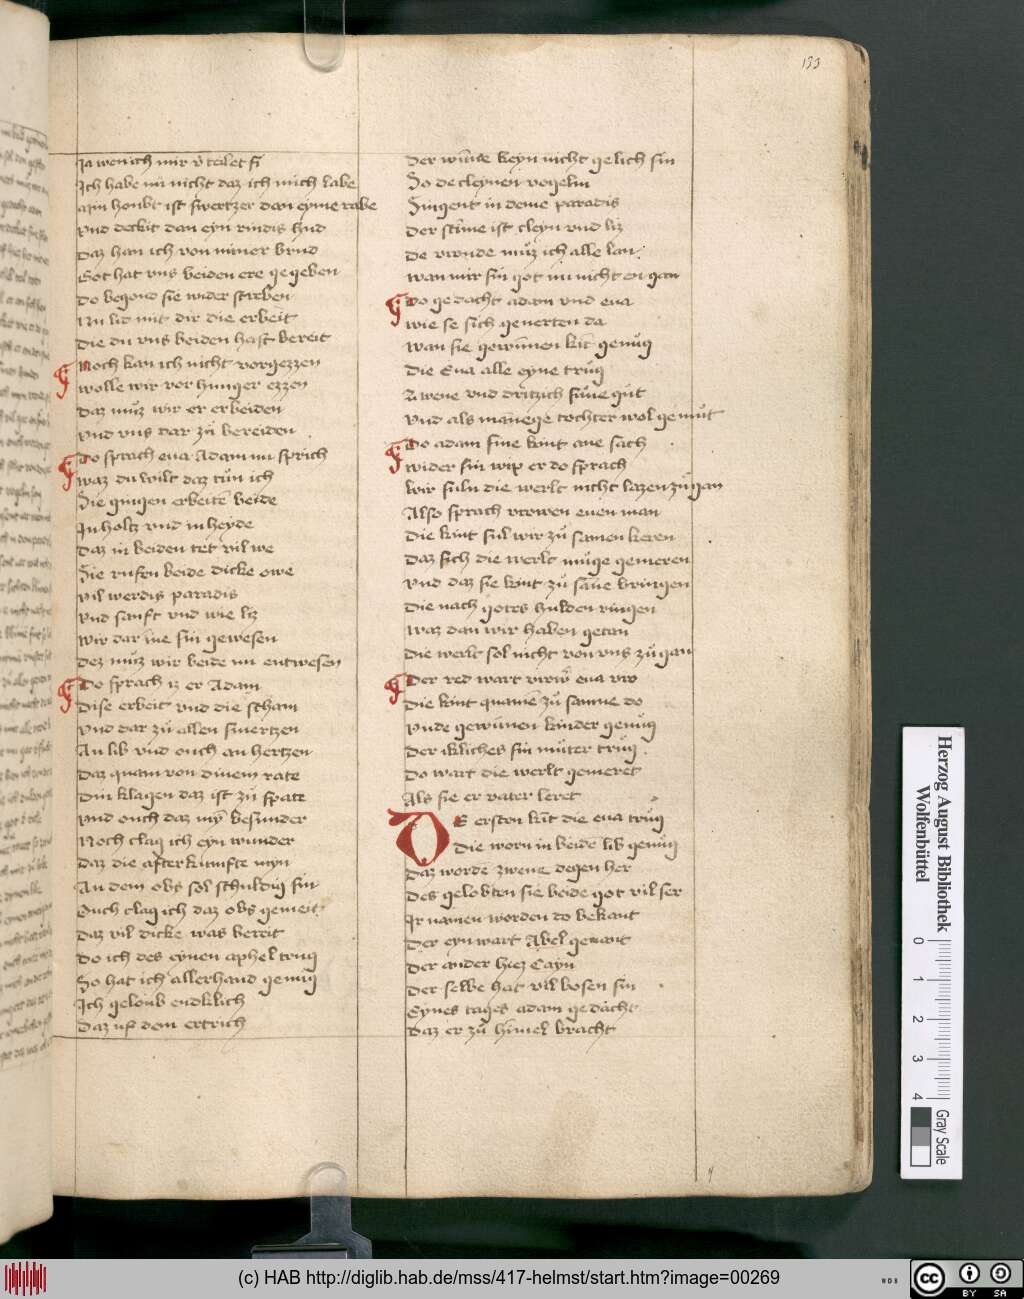 133
Ja wen ich mir v̄ teilet si
Ich habe nu nicht daz ich mich labe
Myn houbt ist swertzer dan eyme rabe
Vnd deckit dan eyn rindis hud
Daz han ich von miner brud
Got hat vns beiden ere gegeben
Do begond sie wider streben
Nu lid mit dir die erbeit
Die du vns beiden hast bereit
Noch kan ich nicht vorgezzen
Wolle wir vor hunger ezzen
Daz muͦz wir er erbeiden
Vnd vns dar zuͦ bereiden
Do sprach eua Adam nu sprich
Waz du wilt daz tuͦn ich
Sie gingen erbeitē beide
In holtz vnd in heyde
Daz in beiden tet vil we
Sie rufen beide dicke owe
Vil werdis paradis
Vnd sanft vnd wie liz
Wir dar īne sin gewesen
Dez muͦz wir beide nu entwesen
Do sprach iz er Adam
Dise erbeit vnd die scham
Vnd dar zuͦ allen smertzen
An lib vnd ouch an hertzen
Daz quam von dinem rate
Din klagen daz ist zuͦ spate
Vnd ouch daz mȳ besunder
Noch clag ich eyn wunder
Daz die afterkumfte myn
An dem obs sol schuldig sin
Ouch clag ich daz obs gemeit
Daz vil dicke was bereit
Do ich des eynen aphel trug
So hat ich allerhand genug
Ich geloub endklich
Daz uf dem ertrich
Der wūne keyn nicht gelich sin
So de cleynen vogelin
Singent in deme paradis
Der stīme ist cleyn vnd liz
De vroude muͦz ich alle lan
Wan mir sin got nu nicht en gan
Do gedacht adam vnd eua
Wie se sich generten da
Wan sie gewūnen kīt genuͦg
Die Eua alle eyne truͦg
Zwene vnd dritzich suͦne guͦt
Vnd als manege tochter wol gemuͦt
Do adam sine kint ane sach
Wider sin wip er do sprach
Wir suln die werlt nicht lazen zuͦ gan
Also sprach vrowen euen man
Die kint sul wir zuͦ samen keren
Daz sich die werlt muͦge gemeren
Vnd daz sie kint zuͦ sāne bringen
Die nach gotes hulden ringen
Waz dan wir haben getan
Die werlt sol nicht von vns zuͦ gan
Der red wart vrow eua vro
Die kint quamē zuͦ samne do
Vnde gewūnen kinder genuͦg
Der ikliches sin muͦter truͦg
Do wart die werlt gemeret
Als sie er vater leret
DE ersten kīt die eua truͦg
Die worn in beidē lib genuͦg
Daz wordē zwene degen her
Des gelobten sie beide got vil ser
Ir namen worden do bekant
Der eyn wart Abel genant
Der ander hiez Cayn
Der selbe hat vil bosen sin
Eynes tages adam gedacht
Daz er zuͦ himel bracht
Herzog August Bibliothek
Wolfenbüttel
0 1 2 3 4
Gray Scale
(c) HAB http://diglib.hab.de/mss/417-helmst/start.htm?image=00269
WDB
cc BY SA